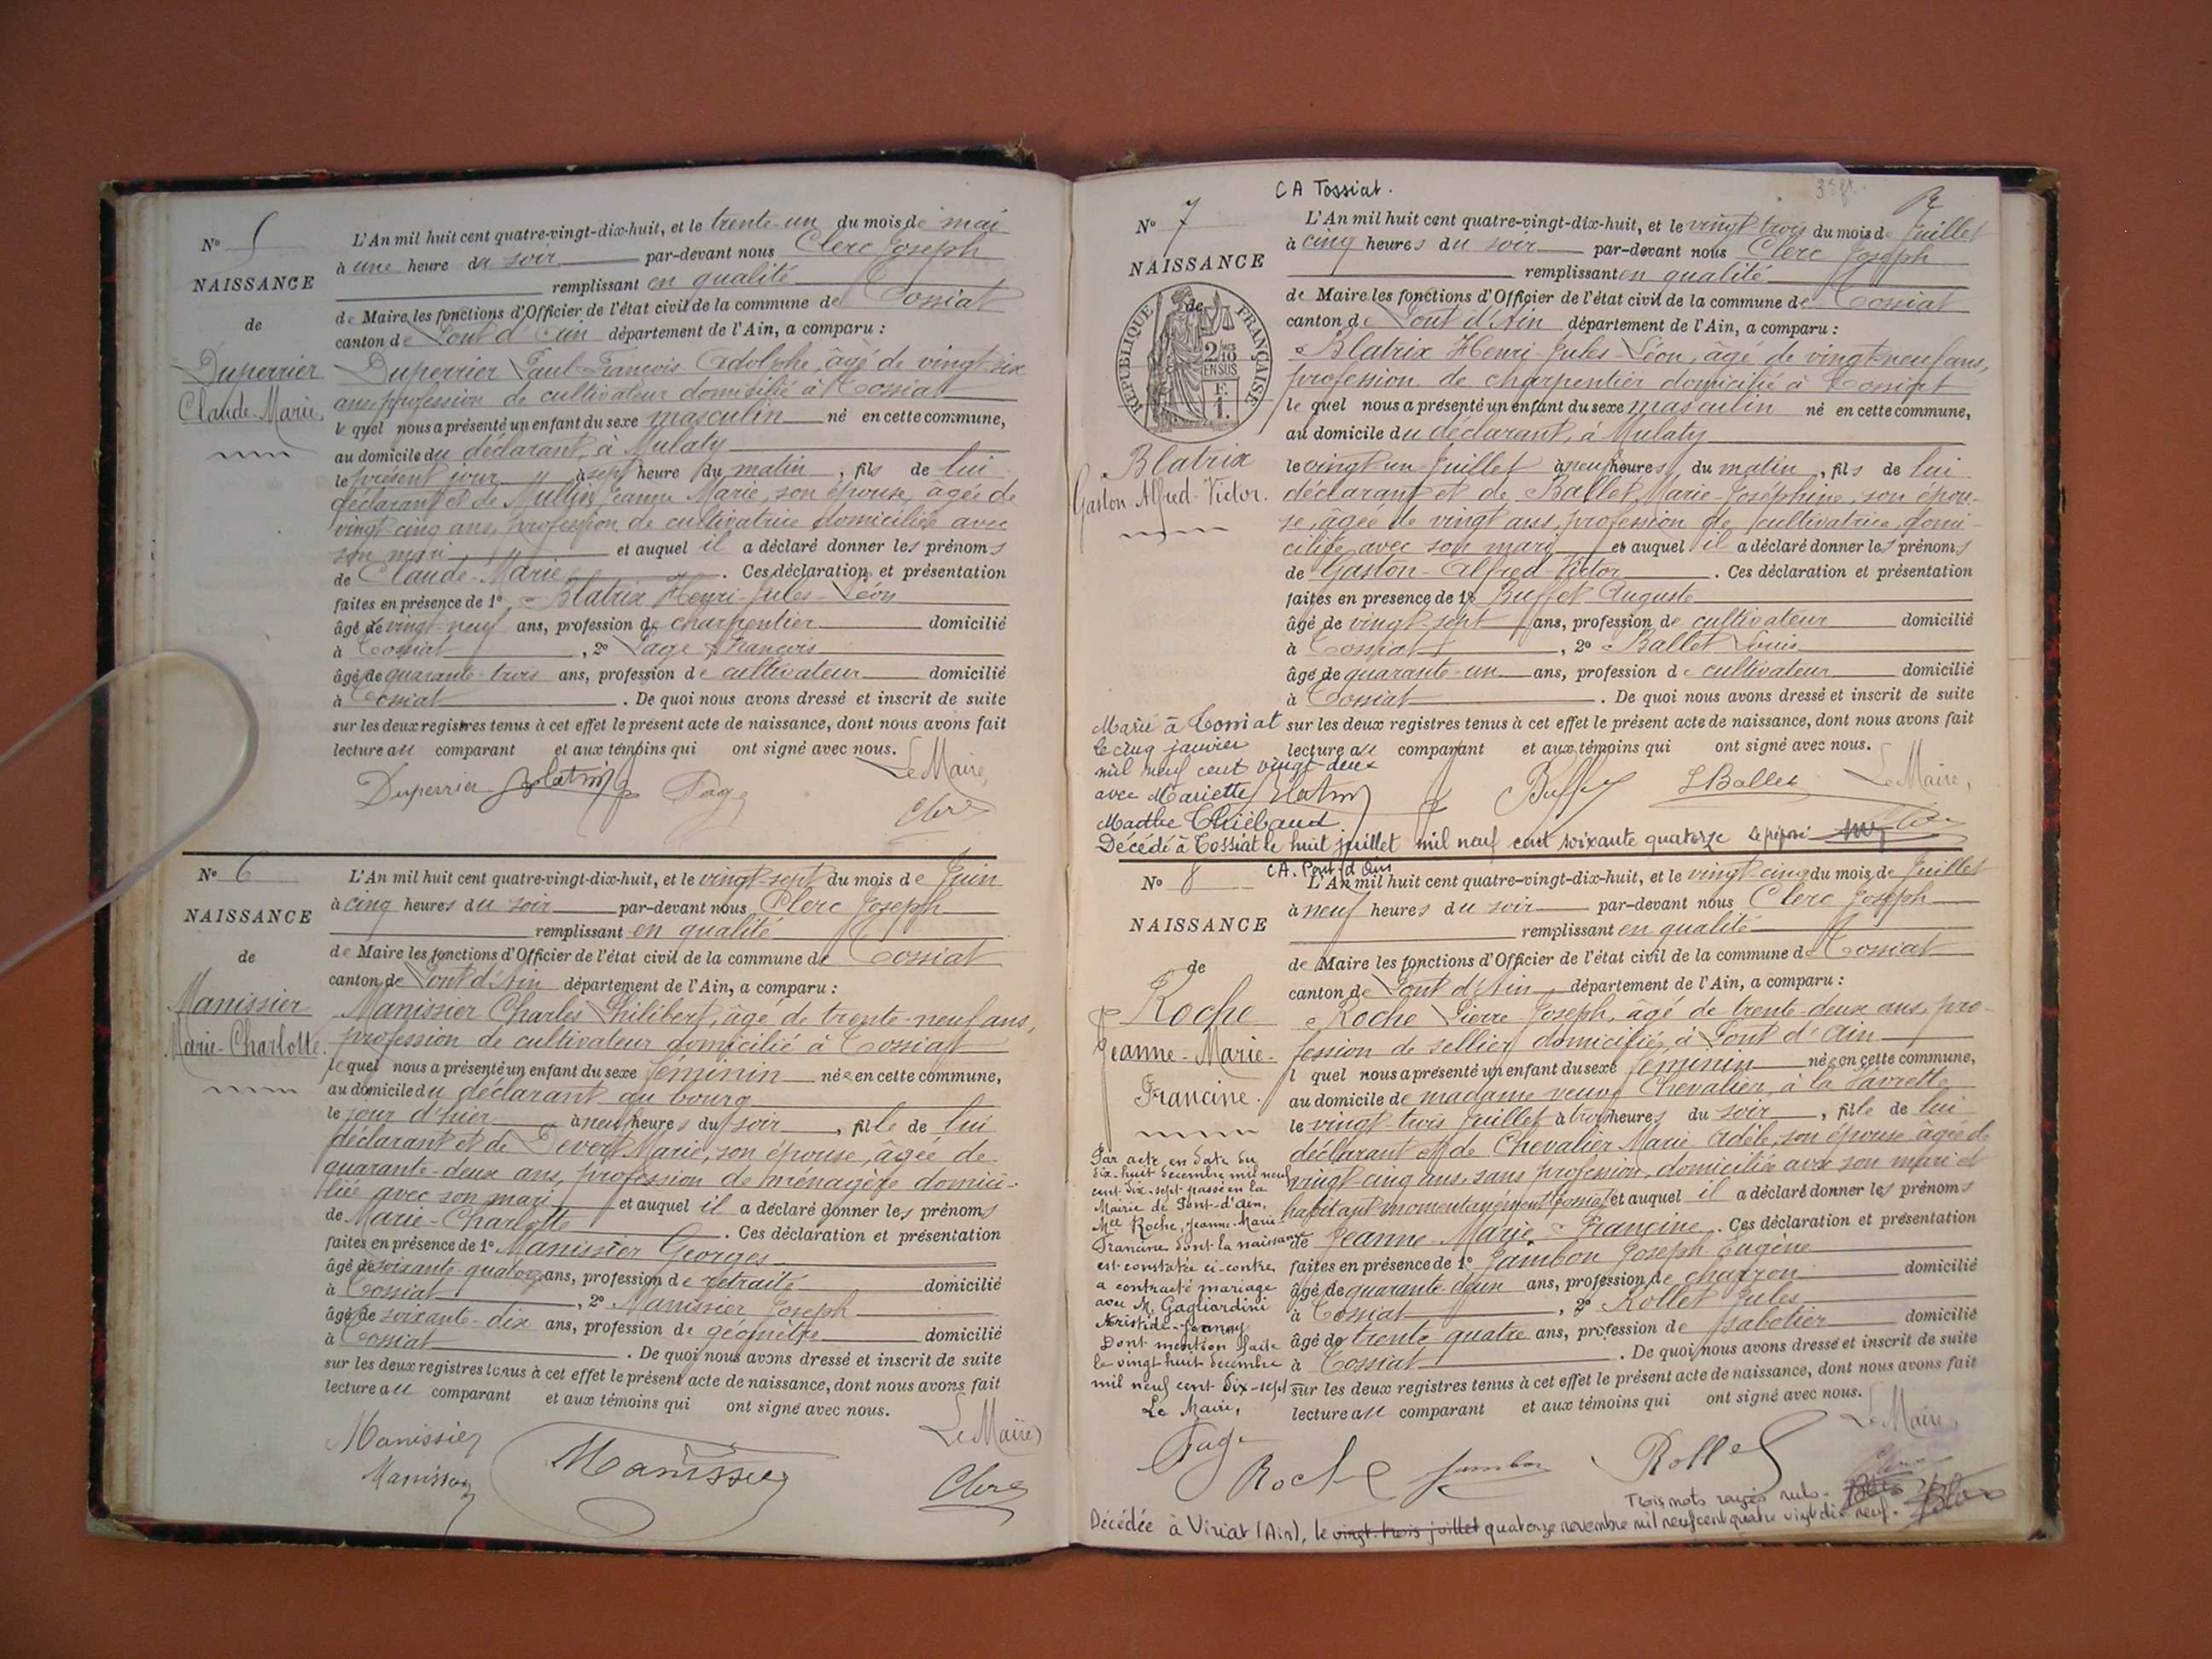 N° 5
NAISSANCE
de
Duperrier
Claude-Marie,
L'An mil huit cent quatre-vingt-dix-huit, et le trente-un du mois de mai
à une heure du soir par-devant nous Clerc Joseph
remplissant en qualité
de Maire les fonctions d'Officier de l'état civil de la commune de Tossiat
canton de Pont d'Ain département de l'Ain, a comparu :
Duperrier Paul-François-Adolphe, âgé de vingt-six
ans, profession de cultivateur domicilié à Tossiat
lequel nous a présenté un enfant du sexe masculin né en cette commune,
au domicile du déclarant, à Mulaty
le présent jour à sept heure du matin, fils de lui
déclarant et de Jeanne Marie, son épouse, âgée de
vingt-cinq ans, profession de cultivatrice domiciliée avec
son mari et auquel il a déclaré donner les prénoms
de Claude-Marie. Ces déclaration et présentation
faites en présence de 1° Blatrix Henri-Jules-Léon
âgé de vingt-neuf ans, profession de charpentier domicilié
à Tossiat, 2° Page François
âgé de quarante-trois ans, profession de cultivateur domicilié
à Tossiat. De quoi nous avons dressé et inscrit de suite
sur les deux registres tenus à cet effet le présent acte de naissance, dont nous avons fait
lecture au comparant et aux témoins qui ont signé avec nous.
Le Maire,
Duperrier Blatrix Page
Clerc
N° 6
NAISSANCE
de
Manissier
Marie-Charlotte.
L'An mil huit cent quatre-vingt-dix-huit, et le vingt-sept du mois de Juin
à cinq heures du soir par-devant nous Clerc Joseph
remplissant en qualité
de Maire les fonctions d'Officier de l'état civil de la commune de Tossiat
canton de Pont d'Ain département de l'Ain, a comparu :
Manissier Charles Philibert, âgé de trente-neuf ans,
profession de cultivateur domicilié à Tossiat
lequel nous a présenté un enfant du sexe féminin née en cette commune,
au domicile du déclarant au bourg
le jour d'hier à neuf heures du soir, fille de lui
déclarant et de Devert Marie, son épouse, âgée de
quarante-deux ans, profession de ménagère domici-
liée avec son mari et auquel il a déclaré donner les prénoms
de Marie-Charlotte. Ces déclaration et présentation
faites en présence de 1° Manissier Georges
âgé de soixante-quatorze ans, profession de retraité domicilié
à Tossiat, 2° Manissier Joseph
âgé de soixante-dix ans, profession de géomètre domicilié
à Tossiat. De quoi nous avons dressé et inscrit de suite
sur les deux registres tenus à cet effet le présent acte de naissance, dont nous avons fait
lecture au comparant et aux témoins qui ont signé avec nous.
Le Maire
Manissier
Manissier Manissier
Clerc
CA Tossiat.
N° 7
NAISSANCE
de
RÉPUBLIQUE FRANÇAISE
2/10 EN SUS
F.
1.
Blatrix
Gaston-Alfred-Victor.
L'An mil huit cent quatre-vingt-dix-huit, et le vingt trois du mois de Juillet
à cinq heures du soir par-devant nous Clerc Joseph
remplissant en qualité
de Maire les fonctions d'Officier de l'état civil de la commune de Tossiat
canton de Pont d'Ain département de l'Ain, a comparu :
Blatrix Henri-Jules-Léon, âgé de vingt-neuf ans,
profession de charpentier domicilié à Tossiat
lequel nous a présenté un enfant du sexe masculin né en cette commune,
au domicile du déclarant, à Mulaty
le vingt-un Juillet à neuf heures du matin, fils de lui
déclarant et de Ballet Marie-Joséphine, son épou-
se, âgée de vingt ans, profession de cultivatrice, domi-
ciliée avec son mari et auquel il a déclaré donner les prénoms
de Gaston-Alfred-Victor. Ces déclaration et présentation
faites en présence de 1° Buffet Auguste
âgé de vingt-sept ans, profession de cultivateur domicilié
à Tossiat, 2° Ballet Louis
âgé de quarante-un ans, profession de cultivateur domicilié
à Tossiat. De quoi nous avons dressé et inscrit de suite
sur les deux registres tenus à cet effet le présent acte de naissance, dont nous avons fait
lecture au comparant et aux témoins qui ont signé avec nous.
Marié à Tossiat
le cinq janvier
mil neuf cent vingt-deux
avec Mariette
Marthe Thiébaud
Blatrix Buffet L Ballet Le Maire,
Clerc
Décédé à Tossiat le huit juillet mil neuf cent soixante quatorze Le préposé
CA. Pont d'Ain
N° 8
NAISSANCE
de
Roche
Jeanne-Marie-
Francine.
L'An mil huit cent quatre-vingt-dix-huit, et le vingt-cinq du mois de Juillet
à neuf heures du soir par-devant nous Clerc Joseph
remplissant en qualité
de Maire les fonctions d'Officier de l'état civil de la commune de Tossiat
canton de Pont d'Ain département de l'Ain, a comparu :
Roche Pierre-Joseph, âgé de trente-deux ans, pro-
fession de sellier domicilié, à Pont d'Ain
l quel nous a présenté un enfant du sexe féminin née en cette commune,
au domicile de madame veuve Chevalier, à la
le vingt-trois Juillet à trois heures du soir, fille de lui
déclarant et de Chevalier Marie Adèle, son épouse âgée de
vingt-cinq ans, sans profession, domiciliée avec son mari et
habitant momentanément Tossiat et auquel il a déclaré donner les prénoms
de Jeanne-Marie-Francine. Ces déclaration et présentation
faites en présence de 1° Jambon Joseph Eugène
âgé de quarante deux ans, profession de charron domicilié
à Tossiat, 2° Rollet Jules
âgé de trente-quatre ans, profession de sabotier domicilié
à Tossiat. De quoi nous avons dressé et inscrit de suite
sur les deux registres tenus à cet effet le présent acte de naissance, dont nous avons fait
lecture au comparant et aux témoins qui ont signé avec nous.
Par acte en date du
dix-huit décembre mil neuf
cent dix-sept passé en la
Mairie de Pont-d'Ain,
Mlle Roche, Jeanne-Marie-
Francine dont la naissance
est constatée ci-contre
a contracté mariage
avec M. Gagliardini
Aristide-Jeanny
Dont mention faite
le vingt huit décembre
mil neuf cent dix-sept
Le Maire,
Page
Le Maire,
Roche Jambon Rollet
Clerc
Trois mots rayés nuls.
Décédée à Viriat (Ain), le vingt-trois juillet quatorze novembre mil neuf cent quatre vingt dix neuf.